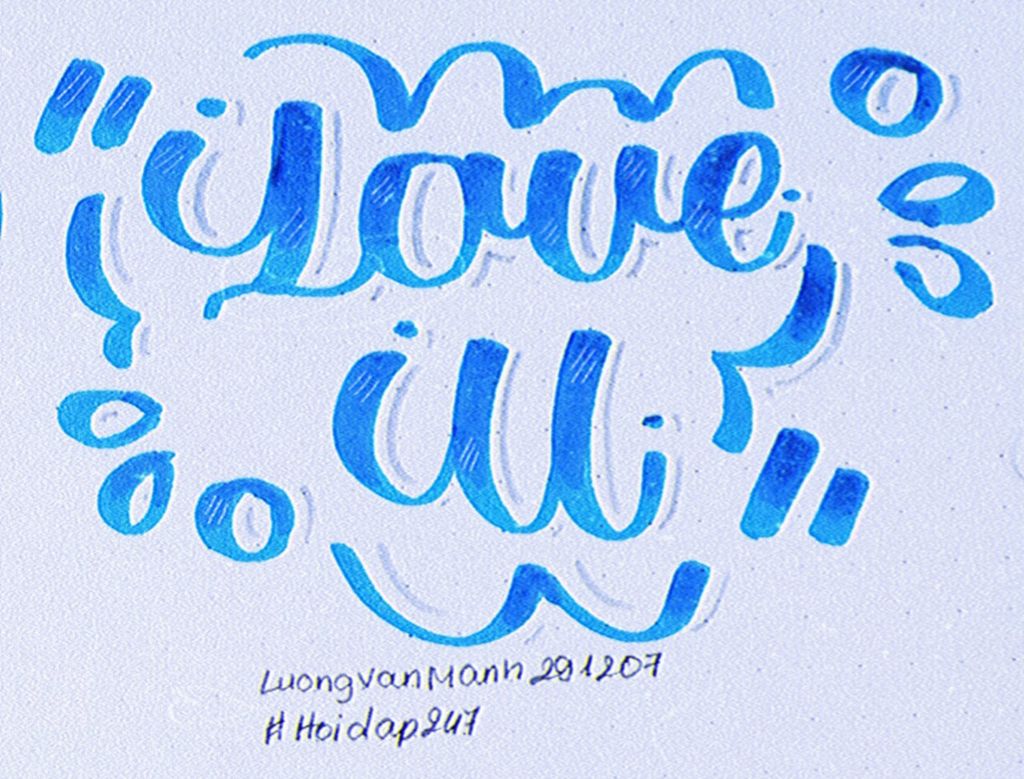 "Love
U"
LuongVanManh291207
#Hoidap247